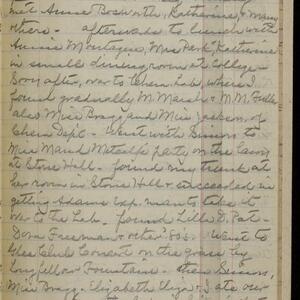 met Anna Bosworth, Katharine, & many
others - afterwards to lunch with
Annie Montague, Miss Kerk, Katharine
in small dining room at College -
Soon after, over to Chem. Lab. where I
found gradually M. Marsh - M. M. Fuller
also Miss Bragg and Miss Jackson, of
Chem Dept - Went with Simons to
Miss Maud Metcalf's party on the lawn
at Stone Hall - found my trunk at
her room in Stone Hall & succeeded in
getting Adams exp. man to take it
over to the Lab - found Lillie D. Pat-
Dora Freeman & other '80's. Went to
Glee Club Concert on the grass by
Longfellow Fountain - then Simons,
Miss Bragg - Elizabeth, Eliza & I ate over